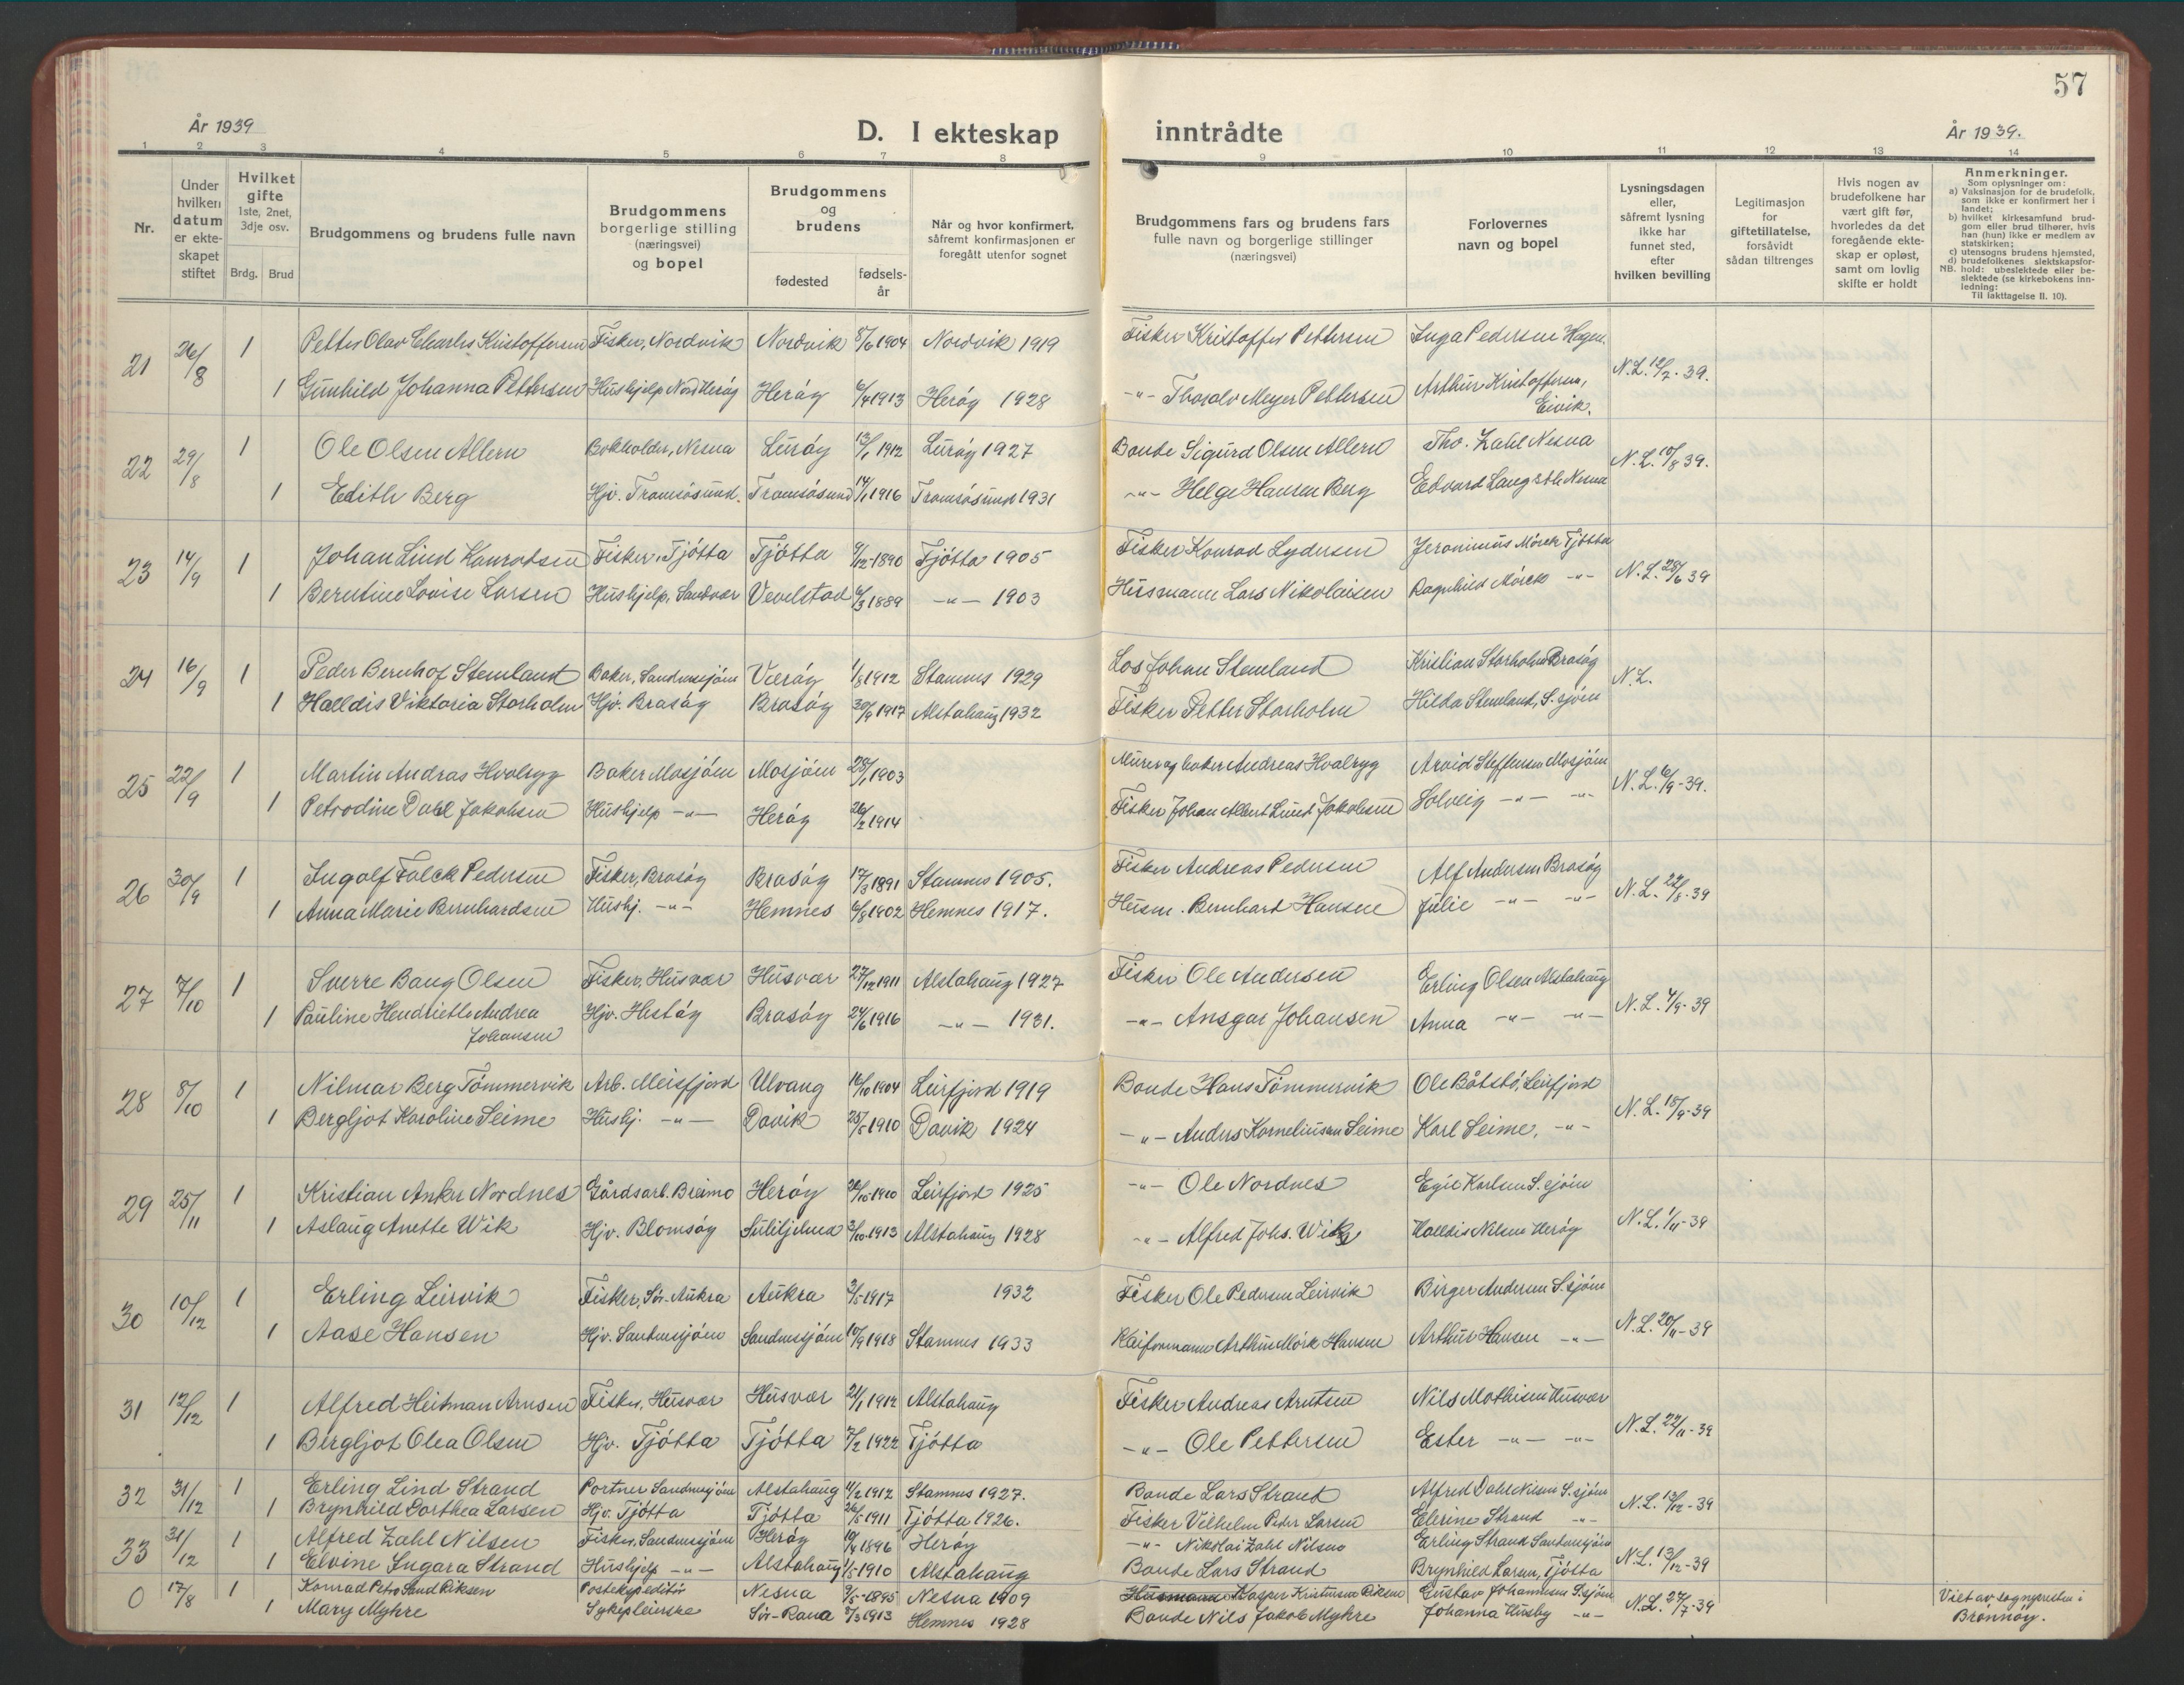 57
År 1939
D. I ekteskap inntrådte
År 1939.
1 2 3 4 5 6 7 8 9 10 11 12 13 14
Nr.
Under hvilken datum er ekteskapet stiftet
Hvilket gifte 1ste, 2net, 3dje osv.
Brdg. Brud
Brudgommens og brudens fulle navn
Brudgommens borgerlige stilling (næringsvei) og bopel
Brudgommens og brudens
fødested
fødselsår
Når og hvor konfirmert, såfremt konfirmasjonen er foregått utenfor sognet
Brudgommens fars og brudens fars fulle navn og borgerlige stillinger (næringsvei)
Forlovernes navn og bopel
Lysningsdagen eller, såfremt lysning ikke har funnet sted, efter hvilken bevilling
Legitimasjon for giftetillatelse, forsåvidt sådan tiltrenges
Hvis nogen av brudefolkene har vært gift før, hvorledes da det foregående ekteskap er opløst, samt om lovlig skifte er holdt
Anmerkninger.
Som oplysninger om:
a) Vaksinasjon for de brudefolk, som ikke er konfirmert her i landet;
b) hvilket kirkesamfund brudgom eller brud tilhører, hvis han (hun) ikke er medlem av statskirken;
c) utensogns brudens hjemsted,
d) brudefolkenes slektskapsforhold: ubeslektede eller beslektede (se kirkebokens innledning:
NB.
Til iakttagelse II. 10).
21 26/8 1 Petter Olav Charles Kristoffersen Fisker, Nordvik Nordvik 8/6 1904 Nordvik 1919 Fisker Kristoffer Pettersen Inga Pedersen Hagen. N.L. 12/7-39.
1 Gunhild Johanna Pettersen Hushjelp Nord Herøy Herøy 6/4 1913 Herøy 1928 -"- Thoralv Meyer Pettersen Arthur Kristoffersen, Eivik.
22 29/8 1 Ole Olsen Allern Bokholder, Nesna Lurøy 13/1 1912 Lurøy 1927 Bonde Sigurd Olsen Allern Tho. Zahl Nesna N.L. 10/8 39.
1 Edith Berg Hjv. Tromsøsund. Tromsøsund 14/1 1916 Tromsøsund 1931 -"- Helge Hansen Berg Edvard Langseth Nesna
23 14/9 1 Johan Lind Konradsen Fisker, Tjøtta Tjøtta 9/12-1890 Tjøtta 1905 Fisker Konrad Lydersen Jeronimus Mörck Tjøtta N.L. 28/6 39
1 Berntine Lovise Larsen Hushjelp, Sandvær Vevelstad 6/3 1889 -"- 1903 Husmann Lars Nikolaisen Ragnhild Mörck -"-
24 16/9 1 Peder Bernhof Stemland Baker, Sandnessjøen Værøy 1/8 1912 Stamnes 1929 Los Johan Stemland Kristian Storholm Brasøy N.L.
1 Halldis Viktoria Storholm Hjv. Brasøy Brasøy 30/9 1917 Alstahaug 1932 Fisker Petter Storholm Hilda Stemland, S.sjøen
25 22/9 1 Martin Andras Hvalryg Baker Mosjøen Mosjøen 28/1 1903 Murer og baker Andreas Hvalryg Arvid Steffensen Mosjøen N.L. 6/9-39.
1 Petrodine Dahl Jakobsen Hushjelp -"- Herøy 26/2 1914 Fisker Johan Albert Lund Jakobsen Solveig -"- -"-
26 30/9 1 Ingolf Falck Pedersen Fisker, Brasøy Brasøy 17/3 1891 Stamnes 1905. Fisker Andreas Pedersen Alf Andersen Brasøy N.L. 22/8-39
1 Anna Marie Bernhardsen Hushj. -"- Hemnes 6/8 1902 Hemnes 1917. Husm. Bernhard Hansen Julie -"- -"-
27 7/10 1 Sverre Bang Olsen Fisker, Husvær Husvær 27/12 1911 Alstahaug 1927 Fisker Ole Andersen Erling Olsen Alstahaug N.L. 4/9-39
1 Pauline Hendriette Andrea Johansen Hjv. Hestøy Brasøy 24/6 1916 -"- 1931. -"- Ansgar Johansen Anna -"- -"-
28 8/10 1 Nilmar Berg Tømmervik Arb. Meisfjord Ulvang 16/10 1904 Leirfjord 1919 Bonde Hans Tømmervik Ole Båtstö, Leirfjord N.L. 18/9-39
1 Bergljot Karoline Seime Hushj. -"- Davik 25/5 1910 Davik 1924 -"- Anders Korneliusen Seime Karl Seime, -"-
29 25/11 1 Kristian Anker Nordnes Gårdsarb. Breimo Herøy 26/10-1910 Leirfjord 1925 -"- Ole Nordnes Egil Karlsen S.sjøen N.L. 1/11-39
1 Aslaug Anette Wik Hjv. Blomsøy Sulitjelma 3/10-1913 Alstahaug 1928 -"- Alfred Johs. Wik Halldis Nilsen Herøy
30 10/12 1 Erling Leirvik Fisker, Sör-Aukra Aukra 3/5-1917 1932 Fisker Ole Pedersen Leirvik Birger Andersen S.sjøen N.L. 20/11-39
1 Aase Hansen Hjv. Sandnessjøen Sandnessjøen 10/9 1918 Stamnes 1933 Kaiformann Arthur Mörk Hansen Arthur Hansen -"-
31 12/12 1 Alfred Heitman Arnsen Fisker, Husvær Husvær 21/1 1912 Alstahaug Fisker Andreas Arntsen Nils Mathisen Husvær N.L. 22/11-39
1 Bergljot Olea Olsen Hjv. Tjøtta Tjøtta 7/2 1922 Tjøtta -"- Ole Pettersen Ester -"- -"-
32 31/12 1 Erling Lind Strand Portner Sandnessjøen Alstahaug 4/2 1912 Stamnes 1927. Bonde Lars Strand Alfred Dahl Nilsen S.sjøen N.L. 13/12-39
1 Brynhild Dorthea Larsen Hjv. Tjøtta Tjøtta 26/5 1911 Tjøtta 1926. Fisker Vilhelm Peder Larsen Elvine Strand -"-
33 31/12 1 Alfred Zahl Nilsen Fisker, Sandnessjøen Herøy 10/4 1896 Herøy -"- Nikolai Zahl Nilsen Erling Strand Sandnessjøen N.L. 13/12-39
1 Elvine Ingara Strand Hushjelp -"- Alstahaug 1/5-1910 Alstahaug Bonde Lars Strand Brynhild Larsen, Tjøtta
0 17/8 1 Konrad Petro Sund Riksen Postekspeditör Nesna 9/5-1895 Nesna 1909 Husmann Kasper Kristensen Riksen Gustav Johannesen S.sjøen N.L. 27/7-39 Viet av sognepresten i
1 Mary Myhre Sykepleierske Sör-Rana 7/3 1913 Hemnes 1928 Bonde Nils Jakob Myhre Johanna Husby -"- Brønnøy.